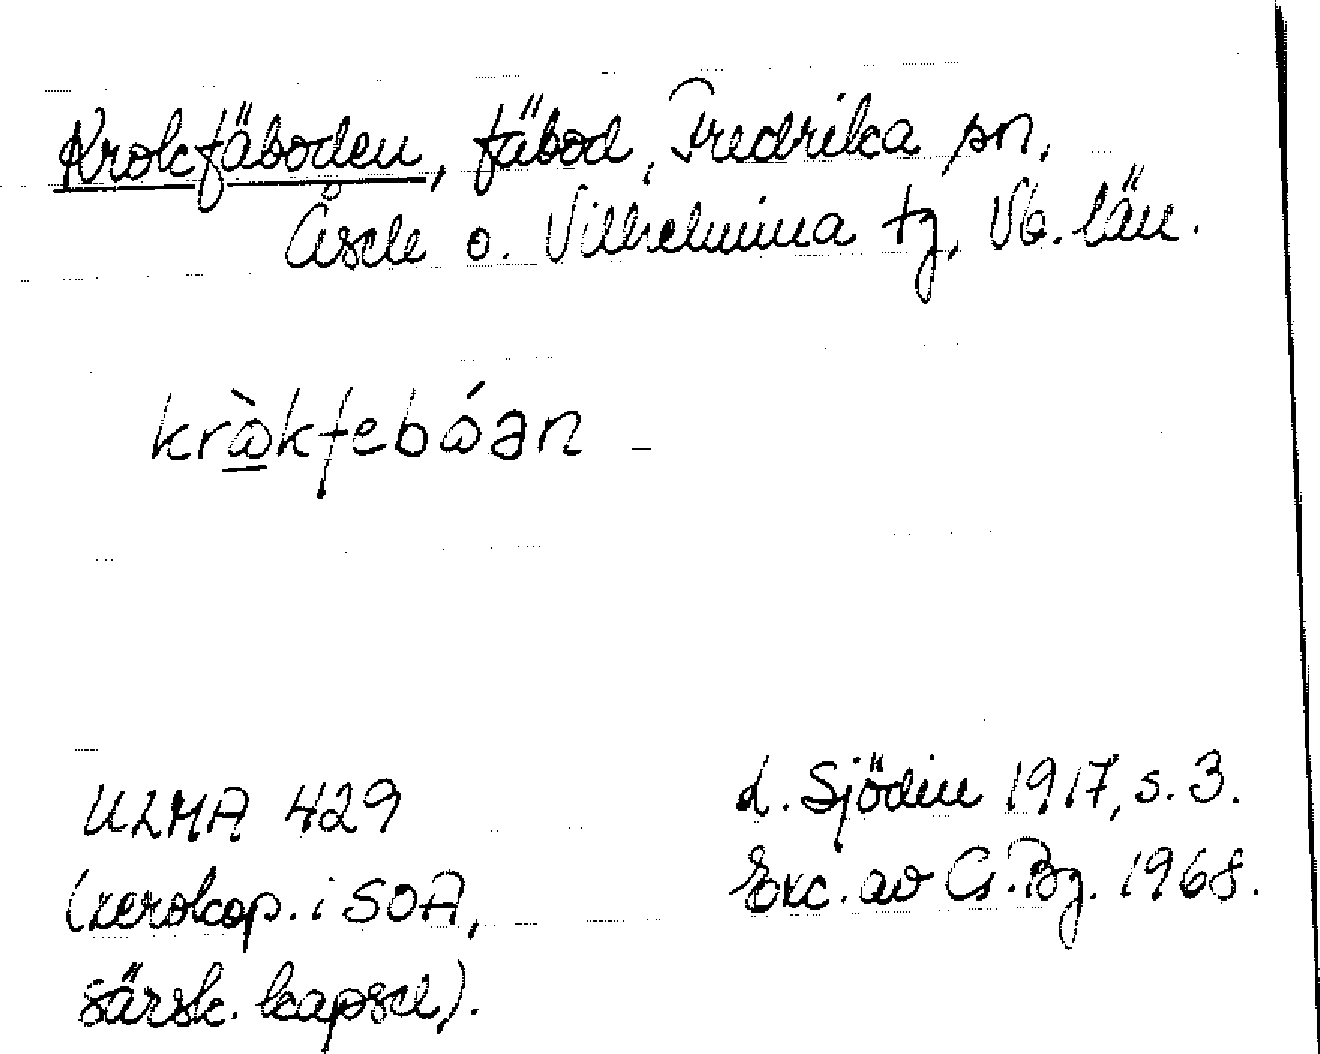 Krokfäboden, fäbod, Fredrika sn,
Åsele o. Vilhelmina tg, Vb. län.
krà̱kfebóan –
ULMA 429
(xerokop. i SOA,
särsk. kapsel).
L. Sjödin 1917, s. 3.
Exc. av G. Bg. 1968.